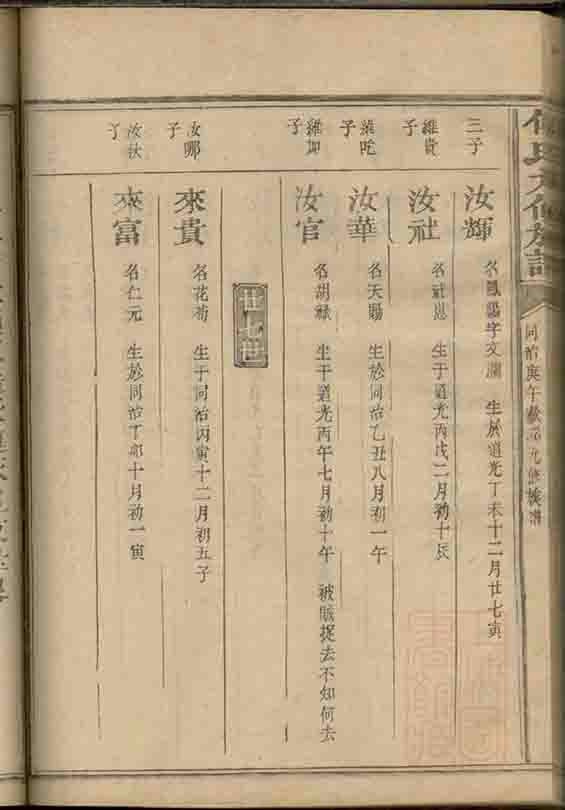 同治庚午
三子
汝輝
名鳳陽字文瀾 生於道光丁未十二月廿七寅
維貴子
汝社
名社恩 生于道光丙戌二月初十辰
子
汝華
名天賜 生於同治乙丑八月初一午
子
汝官
名胡祿 生于道光丙午七月初十午 被賊捉去不知何去
廿七世
汝哪子
來貴
名花荀 生于同治丙寅十二月初五子
汝秋子
來富
名仁元 生於同治丁卯十月初一寅